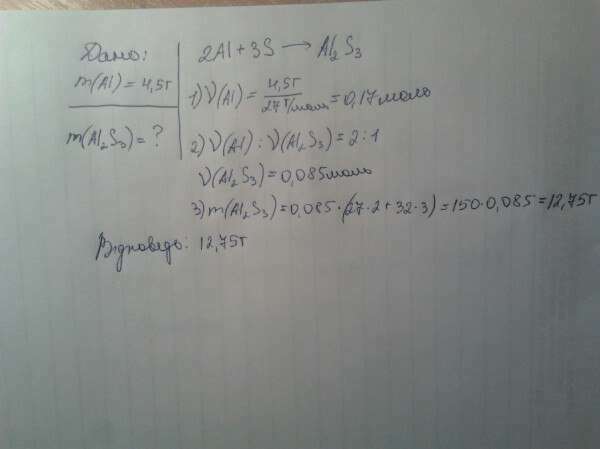 Дано:
m(Al) = 4,5г
m(Al₂S₃) = ?
2Al + 3S → Al₂S₃
1) ν(Al) = 4,5г / 27 г/моль = 0,17 моль
2) ν(Al) : ν(Al₂S₃) = 2 : 1
ν(Al₂S₃) = 0,085 моль
3) m(Al₂S₃) = 0,085 · (27 · 2 + 32 · 3) = 150 · 0,085 = 12,75г
Відповедь: 12,75г